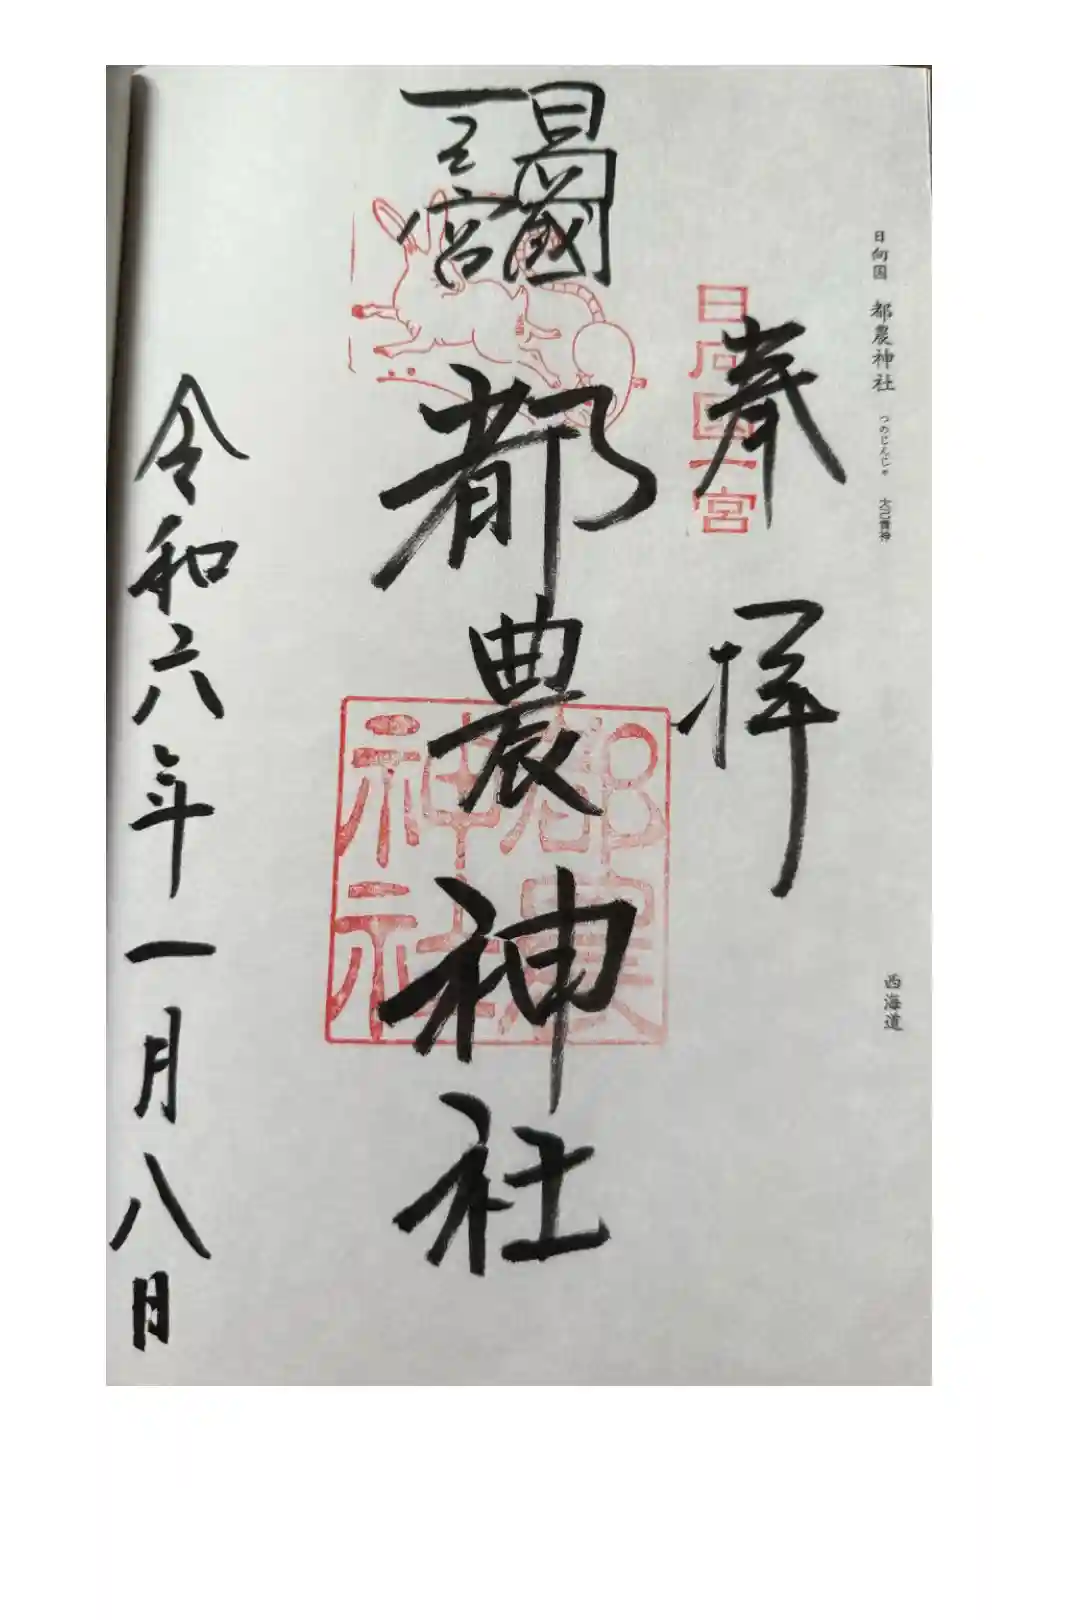 日向国 都農神社 つのじんじゃ 大己貴神
西海道
奉拝
日向国一宮
日向國
一之宮
都農神社
都農神社
令和六年一月八日